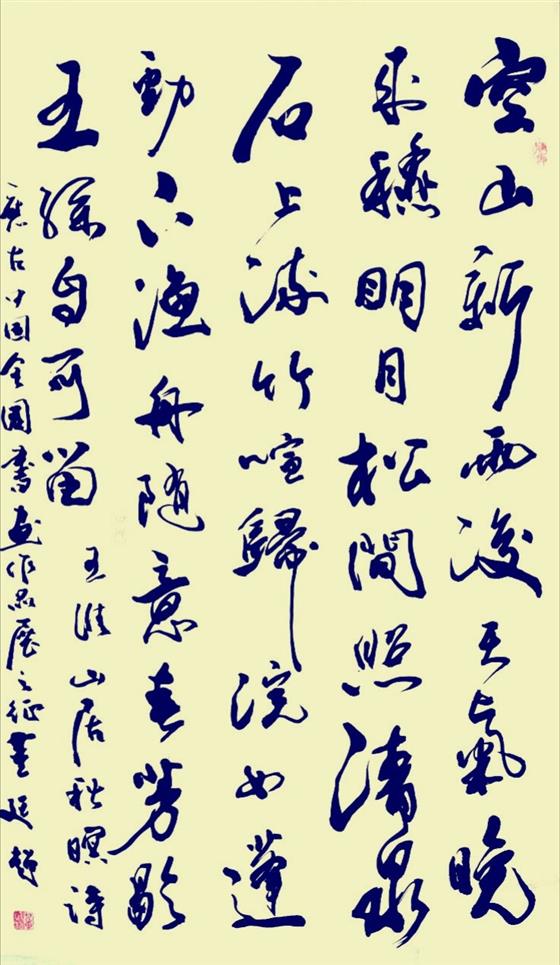 空山新雨後天氣晚
来穐明月松間照清泉
石上流竹喧歸浣女蓮
動下漁舟随意春芳歇
王孫自可留
王維山居秋暝詩
中国全國書画作品展之征